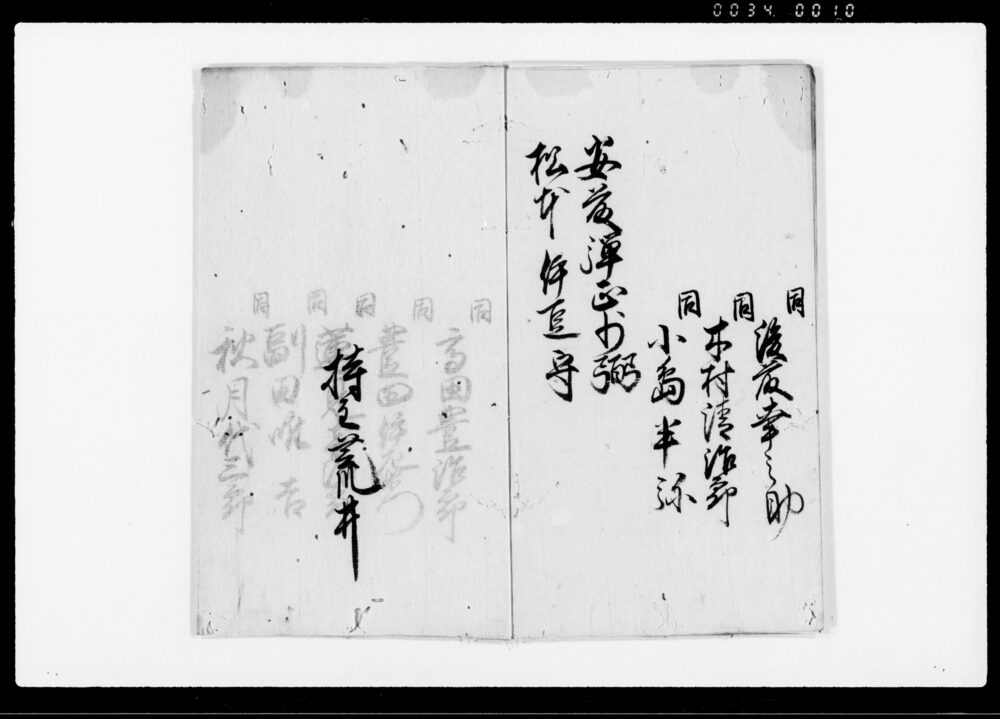 0034 0010
同
後藤幸之助
同
木村清治郎
同
小島半弥
安藤弾正少弼
松本伊豆守
同
高田豊治郎
同
豊田伊右衛門
同
同
副田唯吉
同
秋月代三郎
持主荒井